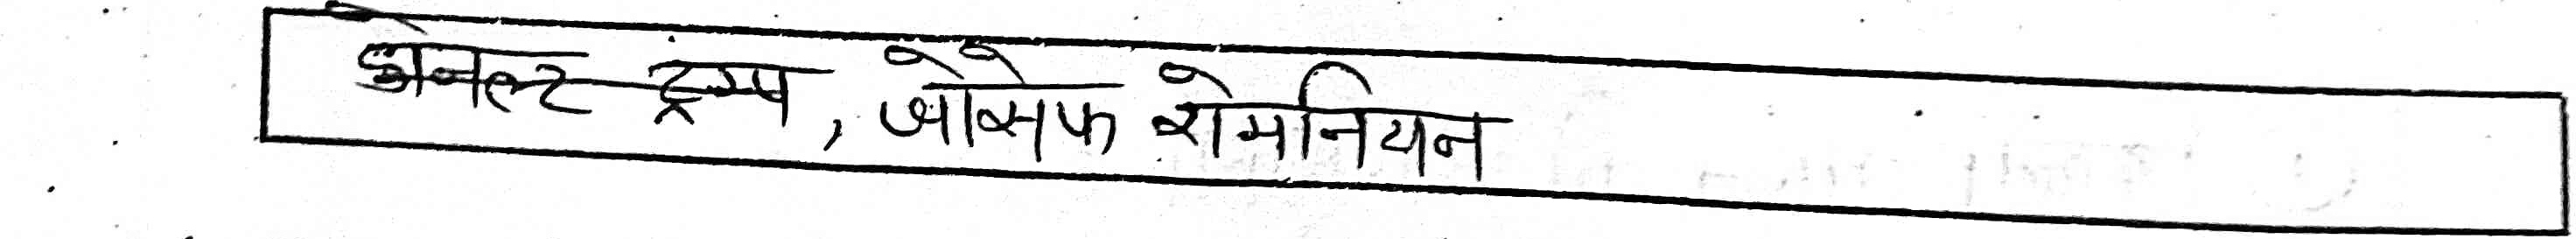 डोनाल्ड ट्रम्प, जोसेफ शेमनियन